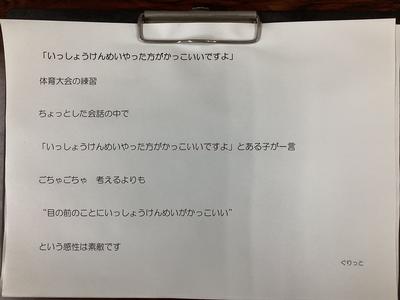 「いっしょうけんめいやった方がかっこいいですよ」
体育大会の練習
ちょっとした会話の中で
「いっしょうけんめいやった方がかっこいいですよ」とある子が一言
ごちゃごちゃ　考えるよりも
“目の前のことにいっしょうけんめいがかっこいい”
という感性は素敵です
ぐりっと